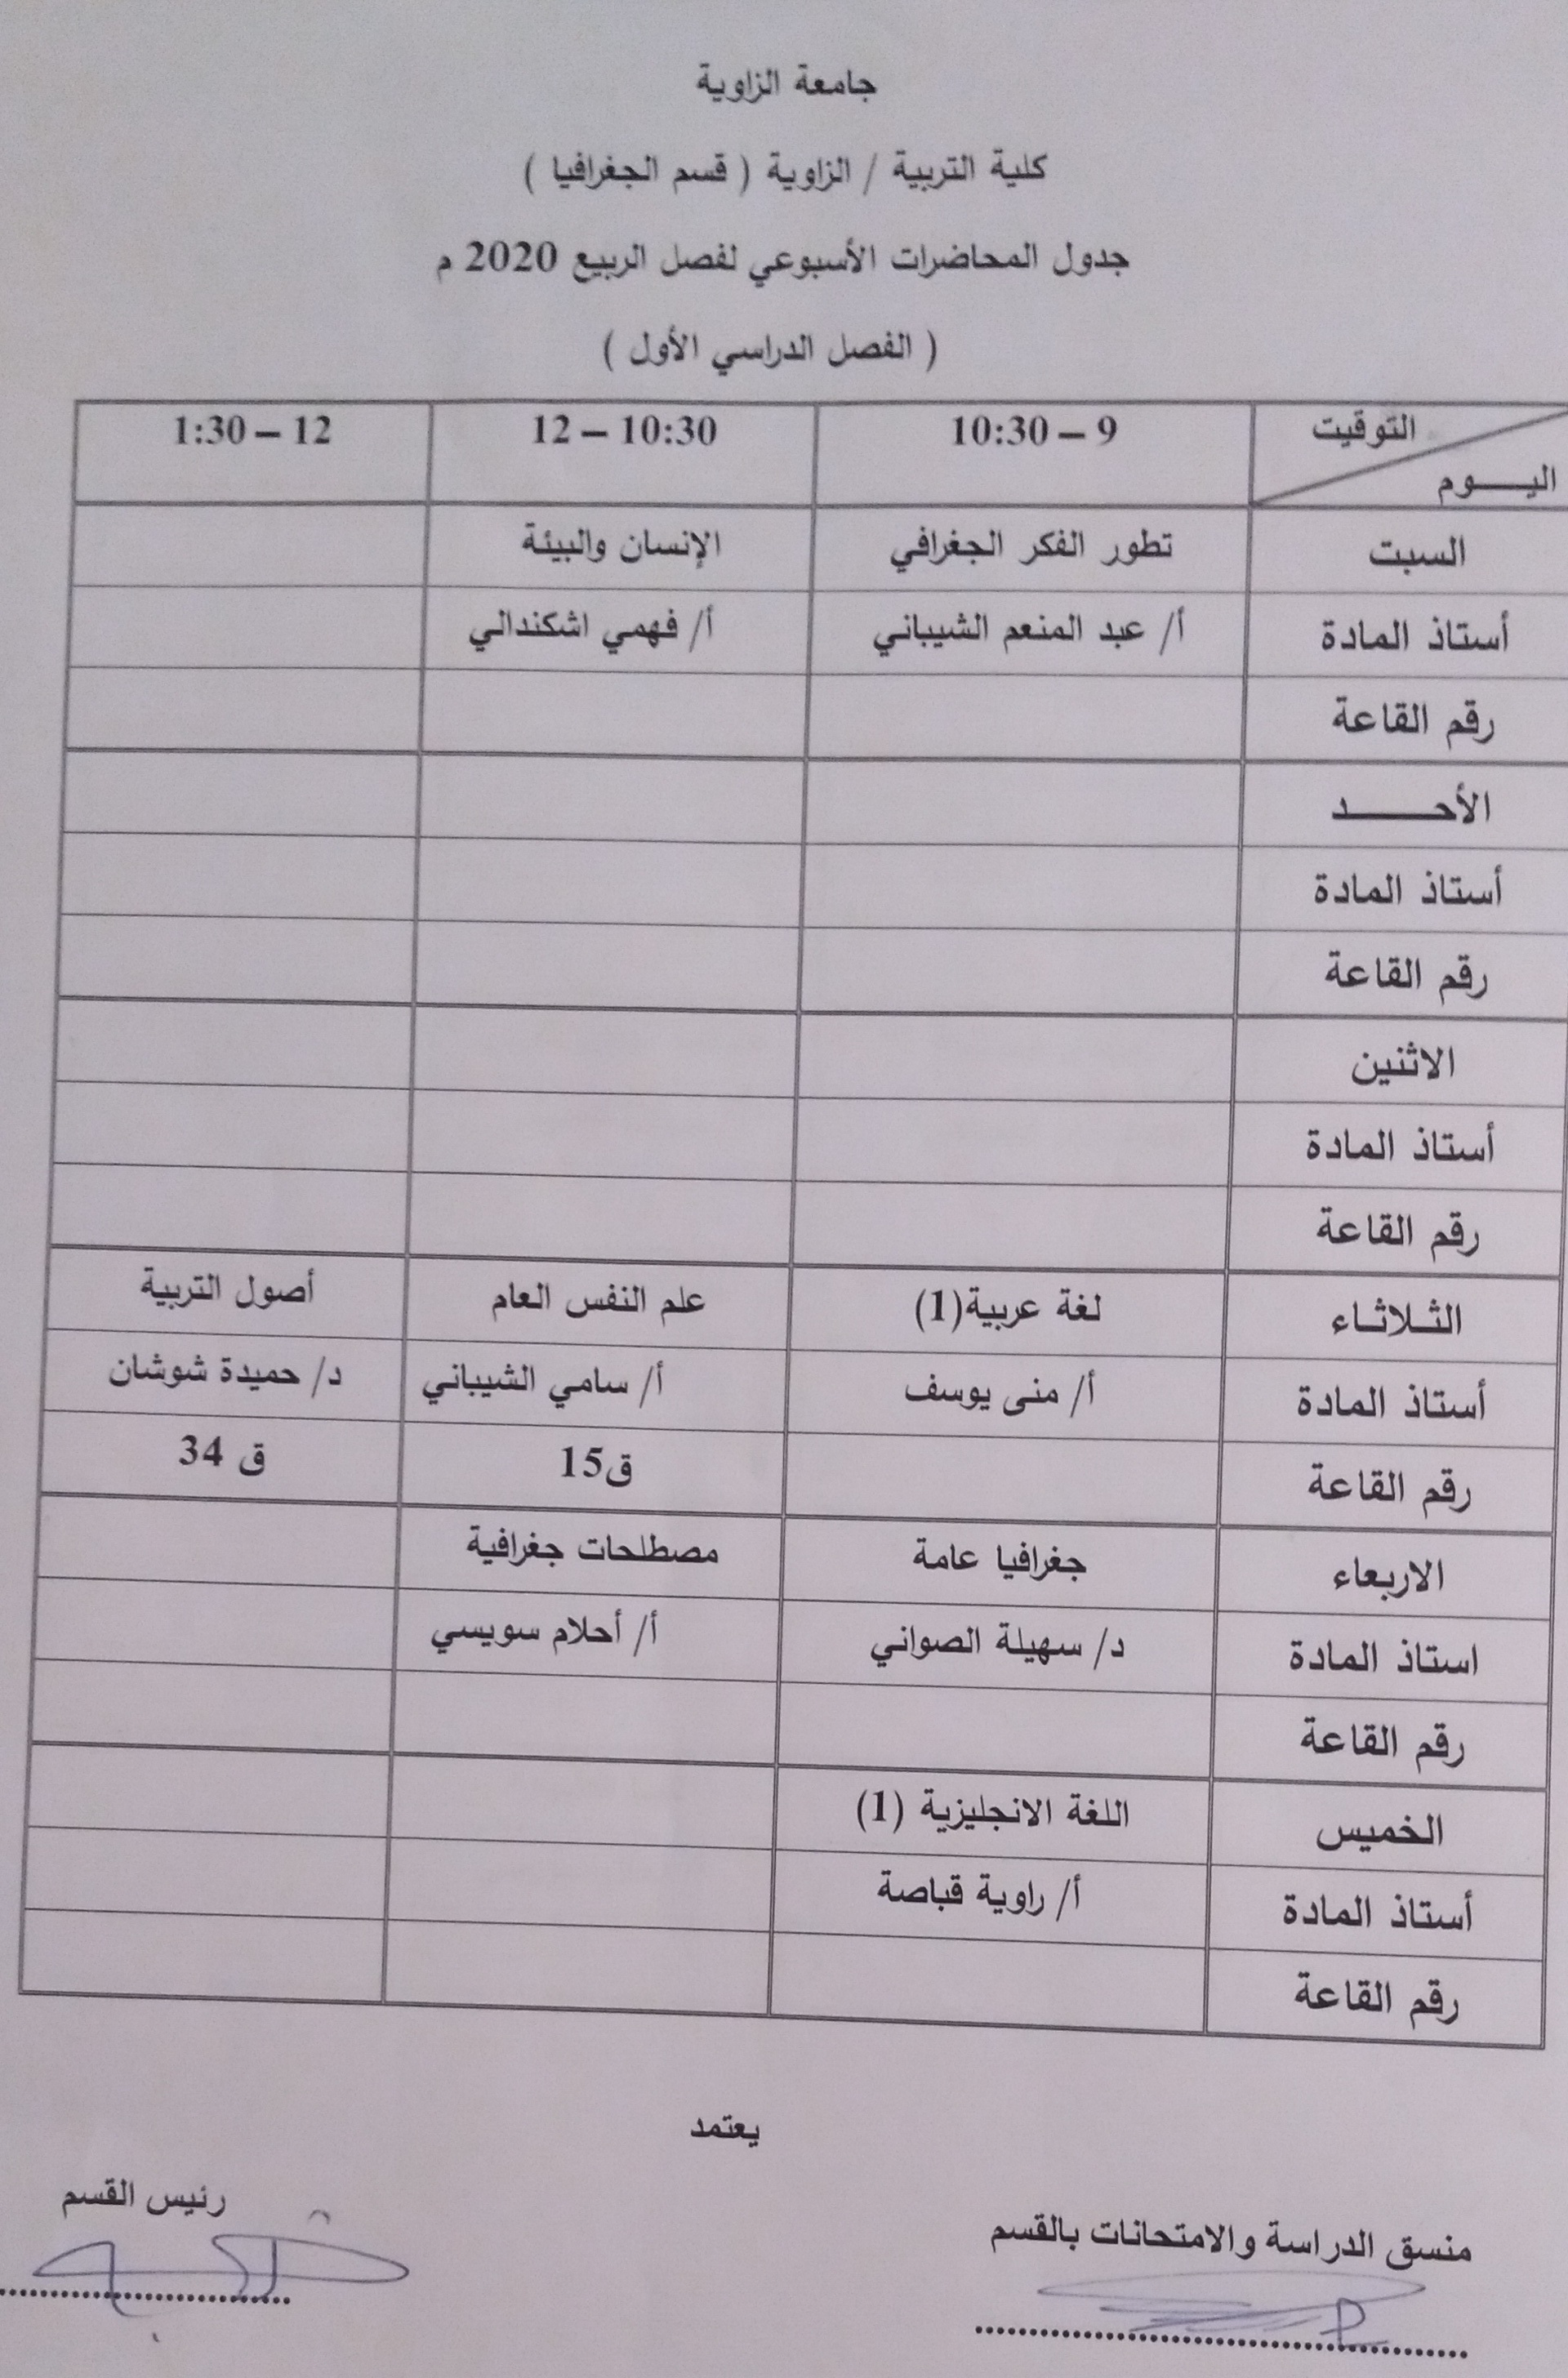 جامعة الزاوية
كلية التربية / الزاوية ( قسم الجغرافيا )
جدول المحاضرات الأسبوعي لفصل الربيع 2020 م
( الفصل الدراسي الأول )
التوقيت اليــــوم 9 – 10:30 10:30 – 12 12 – 1:30
السبت تطور الفكر الجغرافي الإنسان والبيئة
أستاذ المادة أ/ عبد المنعم الشيباني أ/ فهمي اشكندالي
رقم القاعة
الأحــــــد
أستاذ المادة
رقم القاعة
الاثنين
أستاذ المادة
رقم القاعة
الثـلاثـاء لغة عربية(1) علم النفس العام أصول التربية
أستاذ المادة أ/ منى يوسف أ/ سامي الشيباني د/ حميدة شوشان
رقم القاعة ق15 ق 34
الاربعاء جغرافيا عامة مصطلحات جغرافية
استاذ المادة د/ سهيلة الصواني أ/ أحلام سويسي
رقم القاعة
الخميس اللغة الانجليزية (1)
أستاذ المادة أ/ راوية قباصة
رقم القاعة
يعتمد
منسق الدراسة والامتحانات بالقسم رئيس القسم